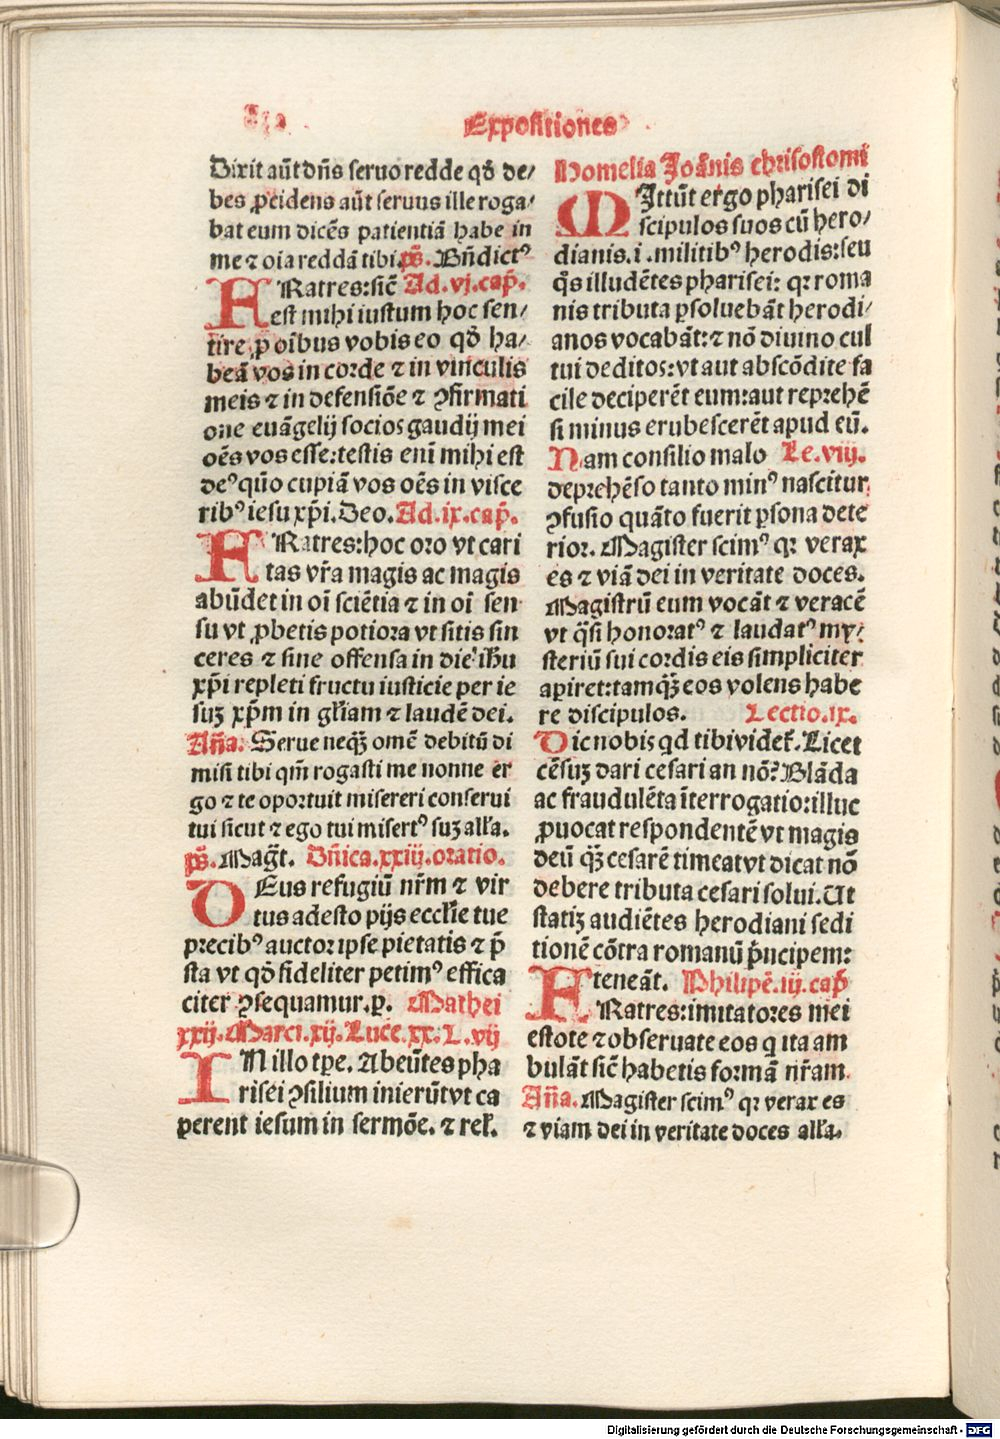 Expositiones
Dixit aūt dn̄s seruo redde qd̄ de/
bes ꝓcidens aūt seruus ille roga/
bat eum dicēs patientiā habe in
me ⁊ oīa reddā tibi. ps̄. Bn̄dictꝰ
FRatres: sic̄ Ad.vj.cap̄.
est mihi iustum hoc sen/
tire ꝓ oībus vobis eo qd̄ ha/
beā vos in corde ⁊ in vinculis
meis ⁊ in defensiōe ⁊ ꝯfirmati
one euāgelij socios gaudij mei
oēs vos esse: testis enī mihi est
deꝰ quō cupiā vos oēs in visce
ribꝰ iesu xp̄i. Deo. Ad.ix.cap̄.
FRatres: hoc oro vt cari
tas vr̄a magis ac magis
abūdet in oī sciētia ⁊ in oī sen
su vt ꝓbetis potiora vt sitis sin
ceres ⁊ sine offensa in die ih̄u
xp̄i repleti fructu iusticie per ie
suꝫ xp̄m in gl̄iam ⁊ laudē dei.
Añā. Serue neq̄ꝫ omē debitū di
misi tibi qm̄ rogasti me nonne er
go ⁊ te oportuit misereri conserui
tui sicut ⁊ ego tui misertꝰ suꝫ alľa.
ps̄. Mag̃t. Dn̄ica.xxiij.oratio.
DEus refugiū nr̄m ⁊ vir
tus adesto pijs eccľie tue
precibꝰ auctor ipse pietatis ⁊ p̄
sta vt qd̄ fideliter petimꝰ effica
citer ꝯsequamur.p. Mathei
xxij. Marci.xij. Luce.xx. L.vij
IN illo tꝑe. Abeūtes pha
risei ꝯsilium inierūt vt ca
perent iesum in sermōe. ⁊ rel̄.
Homelia Joānis chrisostomi
MIttūt ergo pharisei di
scipulos suos cū hero/
dianis.i. militibꝰ herodis: seu
q̄s illudētes pharisei: qꝛ roma
nis tributa ꝑsoluebāt herodi/
anos vocabāt: ⁊ nō diuino cul
tui deditos: vt aut abscōdite fa
cile deciperēt eum: aut reprehē
si minus erubescerēt apud eū.
Nam consilio malo Le.viij.
deprehēso tanto minꝰ nascitur
ꝯfusio quāto fuerit ꝑsona dete
rior. Magister scimꝰ qꝛ verax
es ⁊ viā dei in veritate doces.
Magistrū eum vocāt ⁊ veracē
vt q̄si honoratꝰ ⁊ laudatꝰ my/
steriū sui cordis eis simpliciter
apiret: tamq̄ꝫ eos volens habe
re discipulos. Lectio.ix.
Dic nobis qd tibi videt̄. Licet
cēsuꝫ dari cesari an nō? Blāda
ac fraudulēta īterrogatio: illuc
ꝓuocat respondentē vt magis
deū q̄ꝫ cesarē timeat vt dicat nō
debere tributa cesari solui. Ut
statiꝫ audiētes herodiani sedi
tionē cōtra romanū p̄ncipem:
teneāt. Philipē.iij.cap̄
FRatres: imitatores mei
estote ⁊ obseruate eos q ita am
bulāt sic̄ habetis formā nr̄am.
Añā. Magister scimꝰ qꝛ verax es
⁊ viam dei in veritate doces alľa.
Digitalisierung gefördert durch die Deutsche Forschungsgemeinschaft - DFG